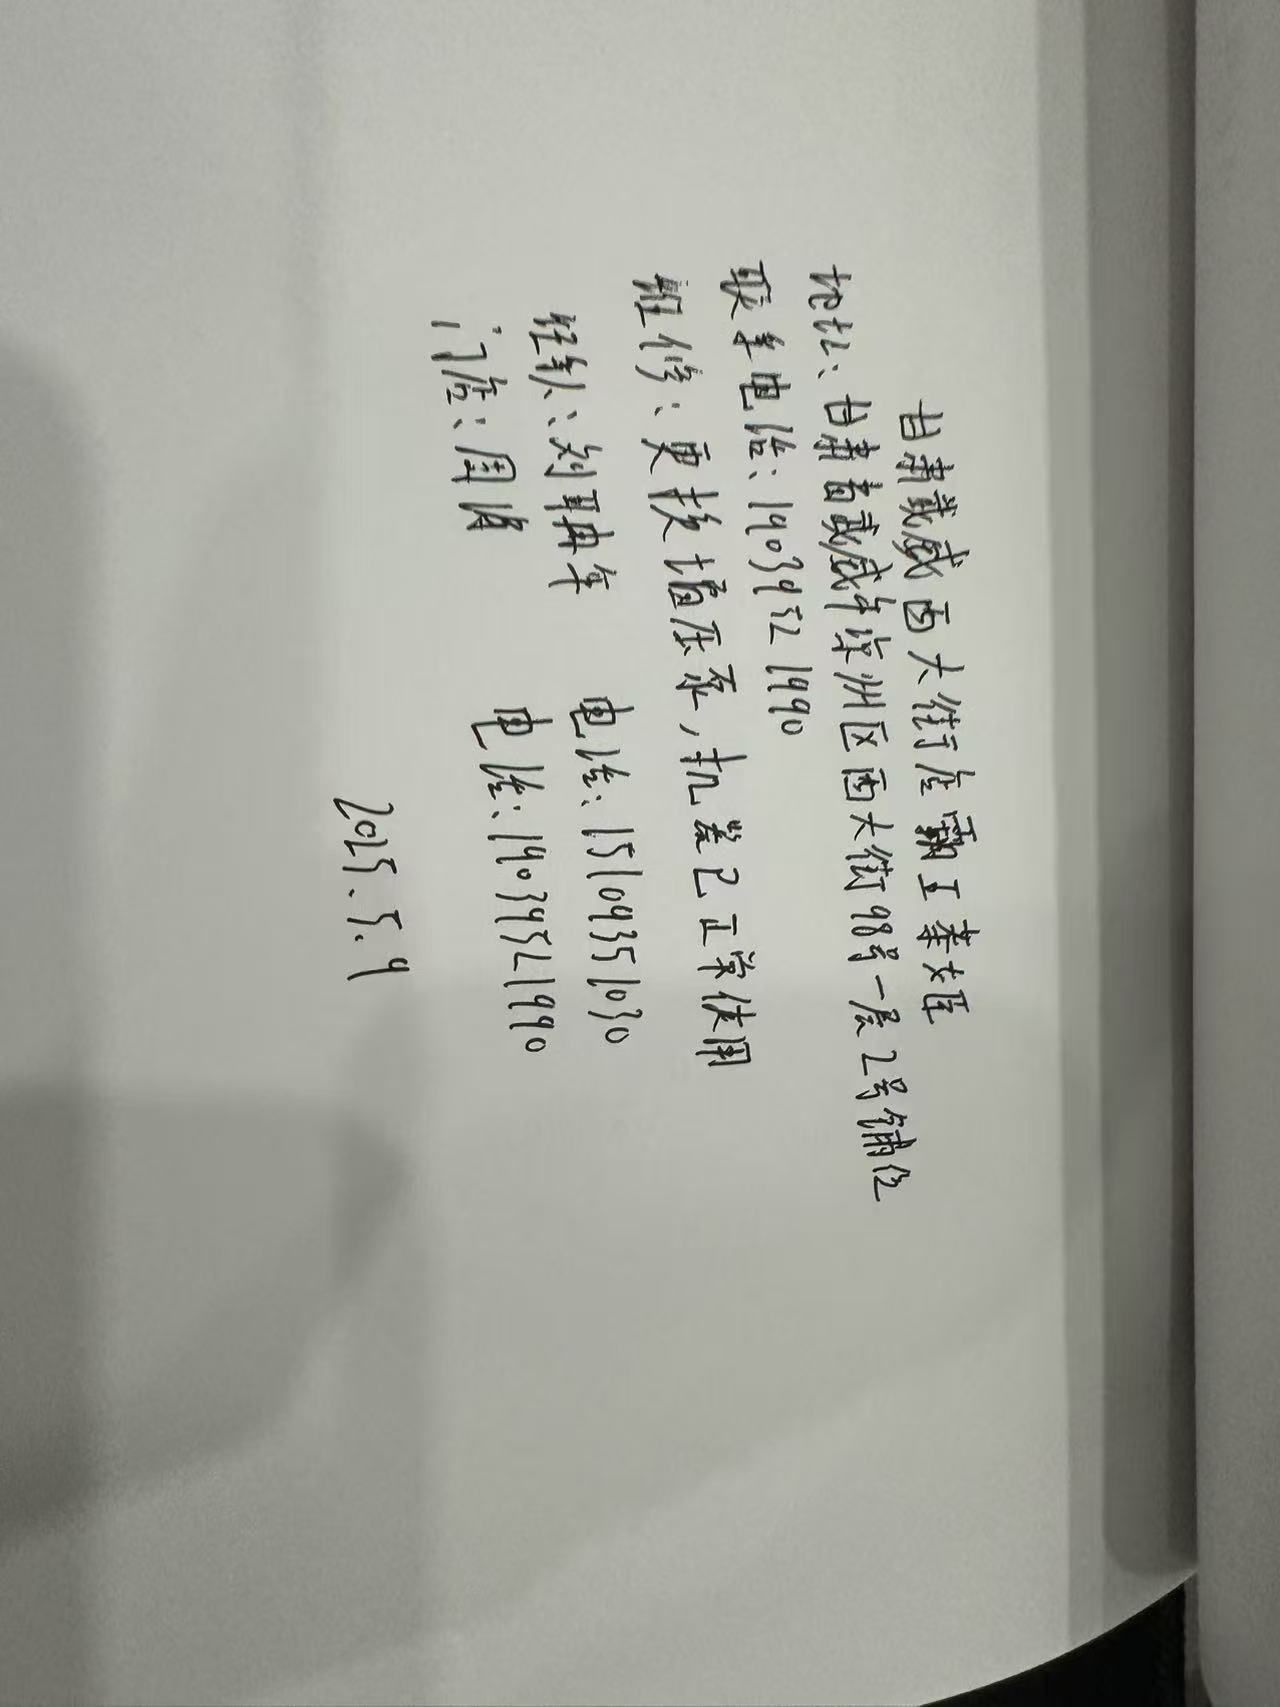 甘肃武威西大街店霸王茶姬
地址:甘肃省武威市凉州区西大街98号一层2号铺位
联系电话:19039521990
维修:更换增压泵,机器已正常使用
经手人:刘再年 电话:15109351030
门店:周海 电话:19039521990
2025.5.9